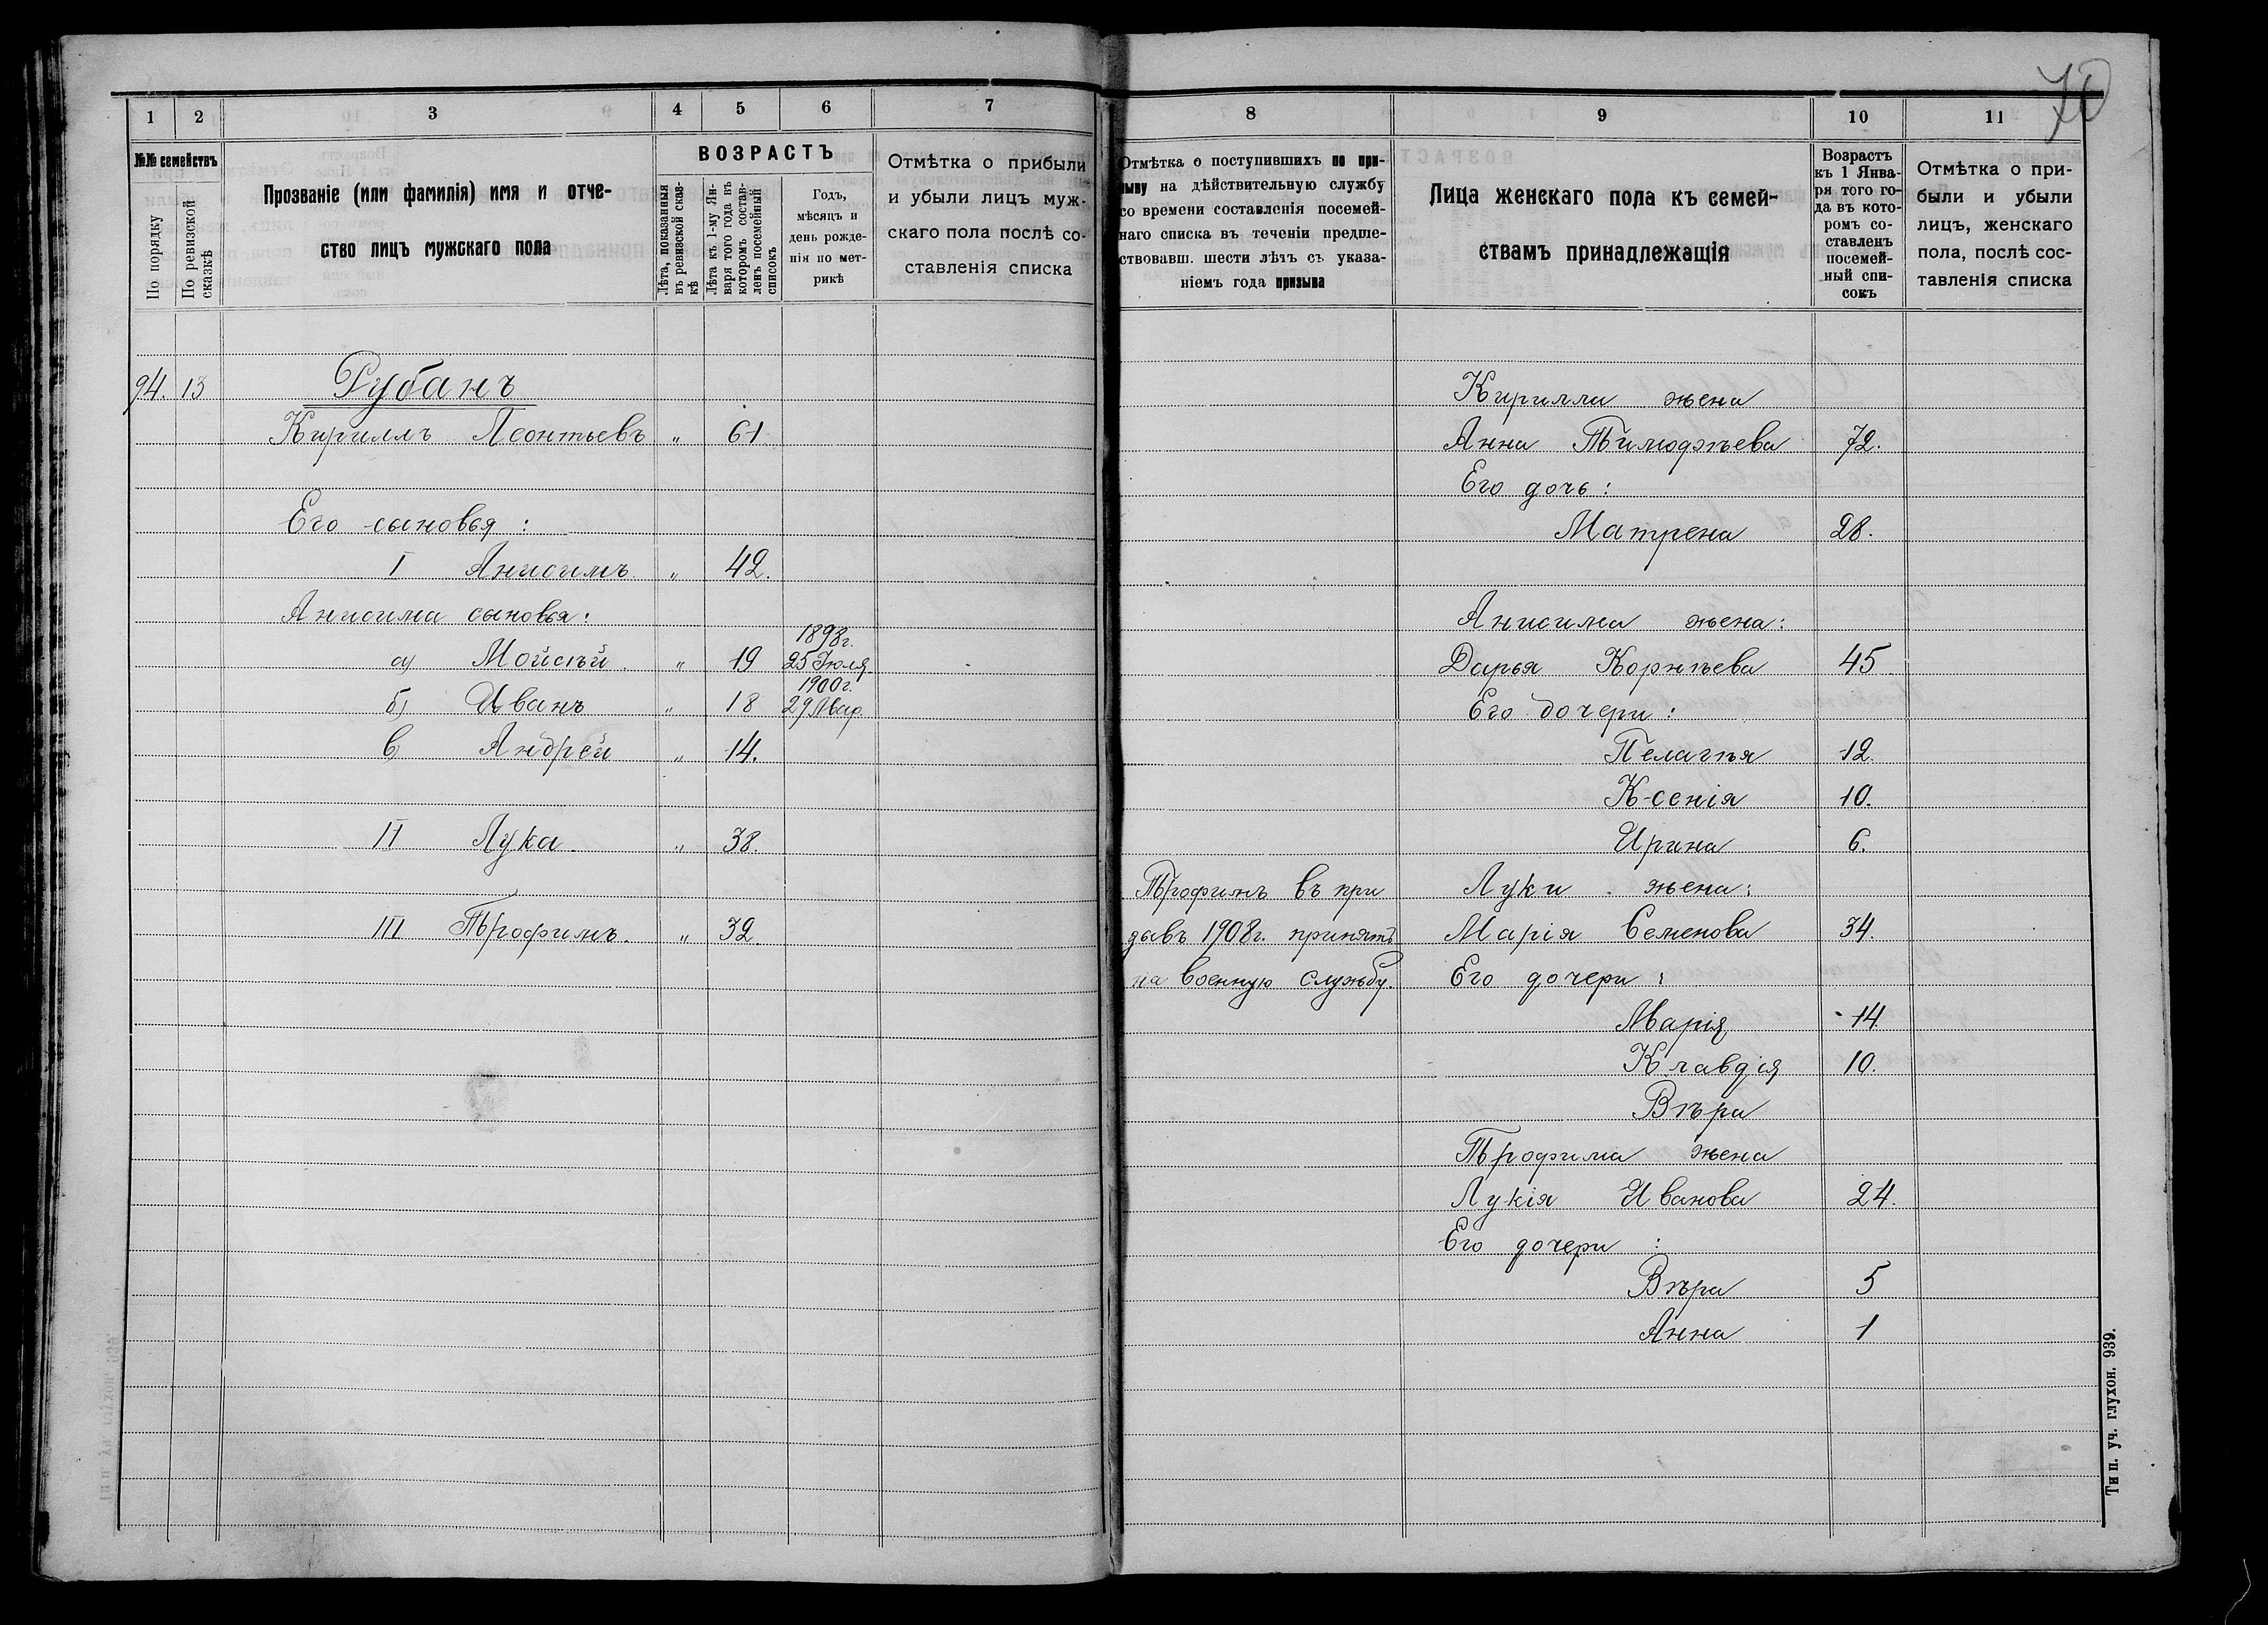 70
1 2 3 4 5 6 7
№№ семействъ
По порядку
По ревизской сказкѣ
Прозваніе (или фамилія) имя и отче-
ство лицъ мужскаго пола
ВОЗРАСТЪ
Лѣта, показанныя
въ ревизской сказ-
кѣ
Лѣта къ 1-му Ян-
варя того года въ
которомъ состав-
ленъ посемейный
списокъ
Годъ,
мѣсяцъ и
день рожде-
нія по мет-
рикѣ
Отмѣтка о прибыли
и убыли лицъ муж-
скаго пола послѣ со-
ставленія списка
94. 13 Рубанъ
Кириллъ Леонтьевъ „ 61
Его сыновья:
I Анисимъ „ 42.
Анисима сыновья:
1898г.
а) Мойсѣй „ 19 25 Іюля
1900г.
б) Иванъ „ 18 29 Мар.
в) Андрей „ 14.
II Лука „ 38.
III Трофимъ. „ 32.
8 9 10 11
Отмѣтка о поступившихъ по при-
зыву на дѣйствительную службу
со времени составленія посемей-
наго списка въ теченіи предше-
ствовавш. шести лѣтъ съ указа-
ніемъ года призыва
Лица женскаго пола къ семей-
ствамъ принадлежащія
Возрастъ
къ 1 Янва-
ря того го-
да въ кото-
ромъ со-
ставленъ
посемей-
ный спи-
сокъ
Отмѣтка о при-
были и убыли
лицъ, женскаго
пола, послѣ сос-
тавленія списка
Кирилла жена
Анна Тимофѣева 72.
Его дочь:
Матрена 28.
Анисима жена:
Дарья Корнѣева 45
Его дочери:
Пелагѣя 12.
Ксенія 10.
Ирина 6.
Трофимъ въ при Луки жена:
зывъ 1908г. принятъ Марія Семенова 34.
на военную службу. Его дочери:
Марія 14.
Клавдія 10.
Вѣра
Трофима жена
Лукія Иванова 24.
Его дочери:
Вѣра 5
Анна 1
Тип. уч. глухон. 939.